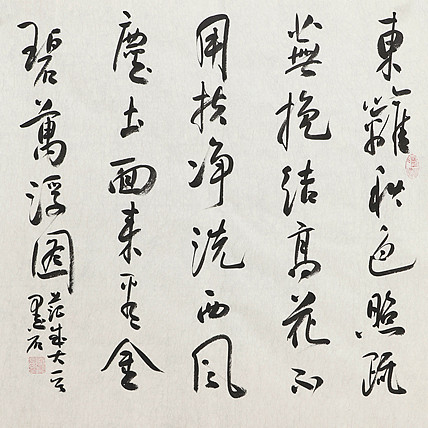 東籬秋色照疏
蕪挽結高花不
用扶净洗西風
塵土面来看金
碧萬浮圖
范成大
墨石